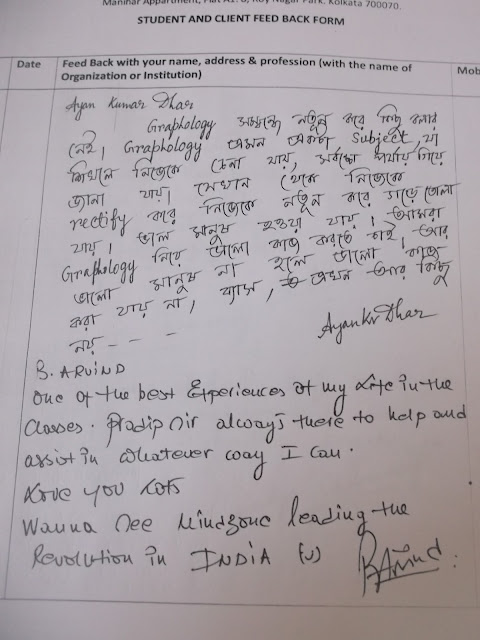 Manihar Appartment, Flat A1. 8, Roy Nagar Park. Kolkata 700070.
STUDENT AND CLIENT FEED BACK FORM
Date
Feed Back with your name, address & profession (with the name of
Organization or Institution)
Mob
Ayan Kumar Dhar
Graphology সম্বন্ধে নতুন করে কিছু বলার
নেই। Graphology এমন একটা Subject, যা
শিখলে নিজেকে চেনা যায়, পর্যায় গিয়ে
জানা যায়। সেখান থেকে নিজেকে
rectify করে নিজেকে নতুন করে গড়ে তোলা
যায়। ভাল মানুষ হওয়া যায়। আমরা
Graphology নিয়ে ভালো কাজ করতে চাই। আর
ভালো মানুষ না হলে ভালো কাজ
করা যায় না, ব্যাস, এখন আর কিছু
নয় - - -
Ayan Kr Dhar
B. ARVIND
One of the best Experiences of my Life in the
Classes. Pradip Sir always there to help and
assist in whatever way I can.
Love you Lots
Wanna see Mindzone leading the
Revolution in INDIA (U)
B Arvind